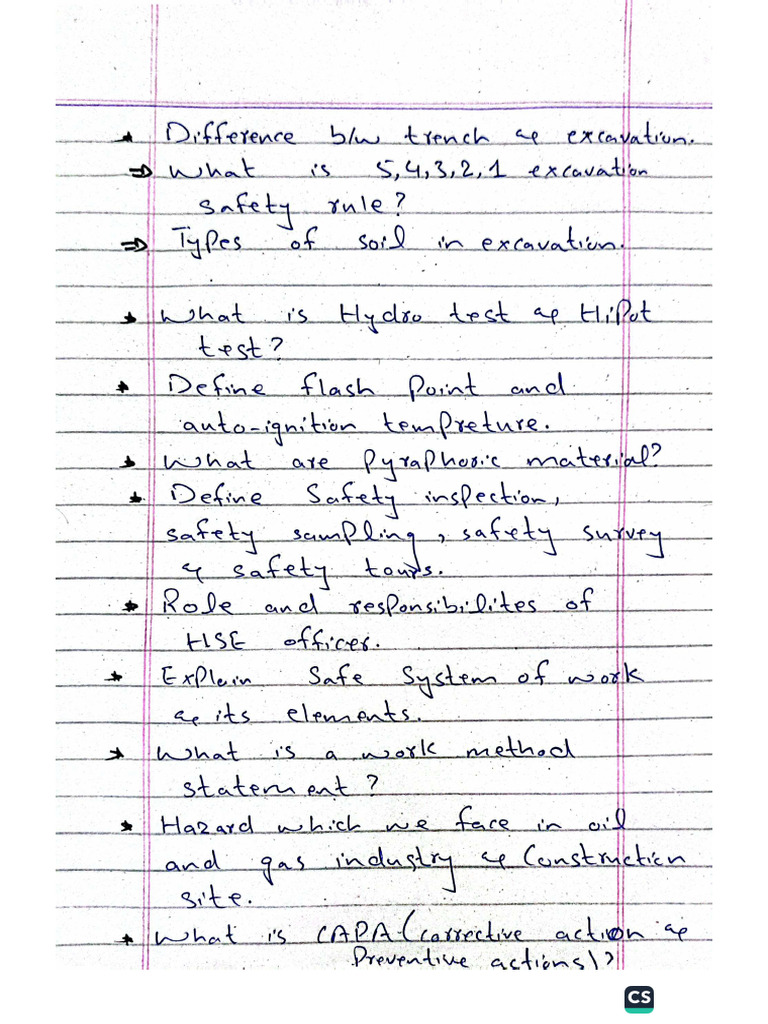 * Difference b/w trench & excavation.
⇒ What is 5,4,3,2,1 excavation
safety rule?
⇒ Types of soil in excavation.
* What is Hydro test & HiPot
test?
* Define flash point and
auto-ignition tempreture.
* What are Pyraphoric material?
* Define Safety inspection,
safety sampling, safety survey
& safety tours.
* Role and responsibilites of
HSE officer.
* Explain Safe System of work
& its elements.
* What is a work method
statement?
* Hazard which we face in oil
and gas industry & Construction
site.
* What is CAPA (corrective action &
Preventive actions)?
CS